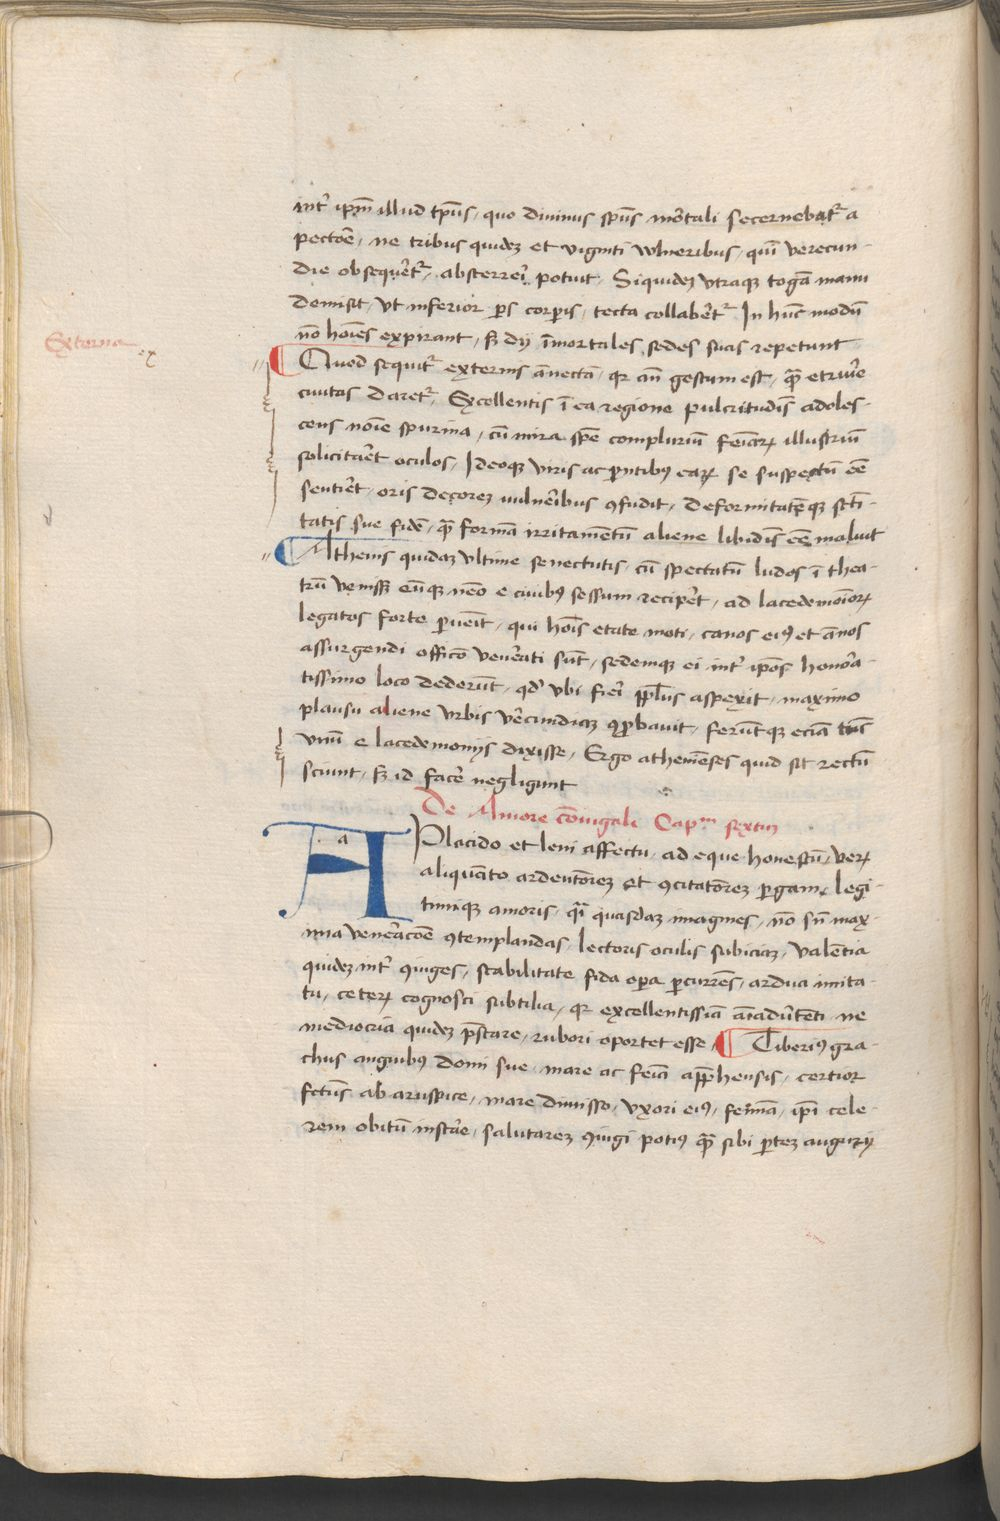 int᷑ ip̄m illud tp̄us, quo divinus sp̄us mortali secernebat᷑ a
pectoē, ne tribus quidez et viginti vulneribus, quū verecun-
die obsequēt᷑, absterreri potuit. Siquidez vtraqꝫ togā manu
demisit, vt inferior ps corpis, tecta collabēt᷑ In hūc modū
nō hoīes expirant, sꝫ dij īmortales sedes suas repetunt
Externa ex
Quod sequit᷑ externis ānectā, qꝛ cū gestum est, qᷓ etrurie
ciuitas daret᷑, Excellentis ī ea regione pulcritudīs adoles-
cens noīe spurina, cū mira spē complurium feīaꝝ illustrium
solicitaret oculos, Ideoqꝫ viris ac pntibꝰ eaꝝ se suspectū eē
sentiret, oris decorez vulneribus ꝯfudit, deformitatēqꝫ scti-
tatis sue fidē, qᷓ formā irritamentū aliene libidīs eē maluit
Athenis quidaz vltime senectutis, cū spectatū ludos ī thea-
trū venissꝫ eūqꝫ nēo e ciuibꝰ sessum reciperet, ad lacedemoīorꝝ
legatos forte ꝑuenit, qui hoīs etate moti, canos eiꝰ et ānos
assurgendi officō venerati sūt, sedemqꝫ ei int᷑ ipōs honora-
tissimo loco dederūt, qd᷒ vbi fieri ppl̄us aspexit, maximo
plausu aliene vrbis verecundiaz ꝯprobauit, ferūtqꝫ eciā tūc
vnū e lacedemonijs dixisse, Ergo athenēses quid sit rectū
sciunt, sꝫ id facē negligunt
De Amore cōiugali Capᵐ sextū
a
A Placido et leni affectu, ad eque honestū, verꝝ
aliquāto ardentiorez et ꝯcitatiorez pergam, legi-
timiqꝫ amoris, qᷓi quasdaz imagines, nō sn̄ max-
ima veneracōe ꝯtemplandas, lectoris oculis subiciaz, valentia
quidez int᷑ ꝯiuges, stabilitate fida opa ꝑcurrēs, ardua imita-
tu, ceteꝝ cognosci subtilia, qꝛ excellentissīa āīaduertenti ne
mediocria quidez pstare, rubori oportet esse, Tiberiꝰ gra-
chus anguibꝰ domi sue mare ac feīa apphensis, certior
fctūs ab aruspice, mare dimisso, vxori eiꝰ, femina, ipi cele-
rem obitū instare, salutarez ꝯiugi potiꝰ qᷓ sibi ꝑtez augurij